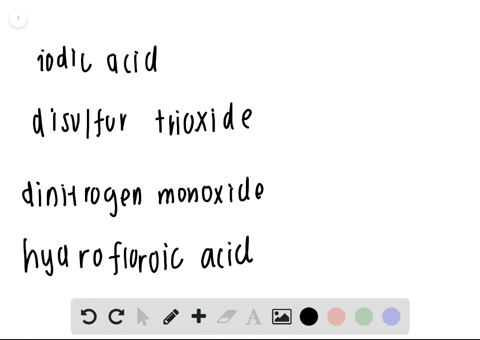 1
iodic acid
disulfur trioxide
dinitrogen monoxide
hydrofloroic acid
A